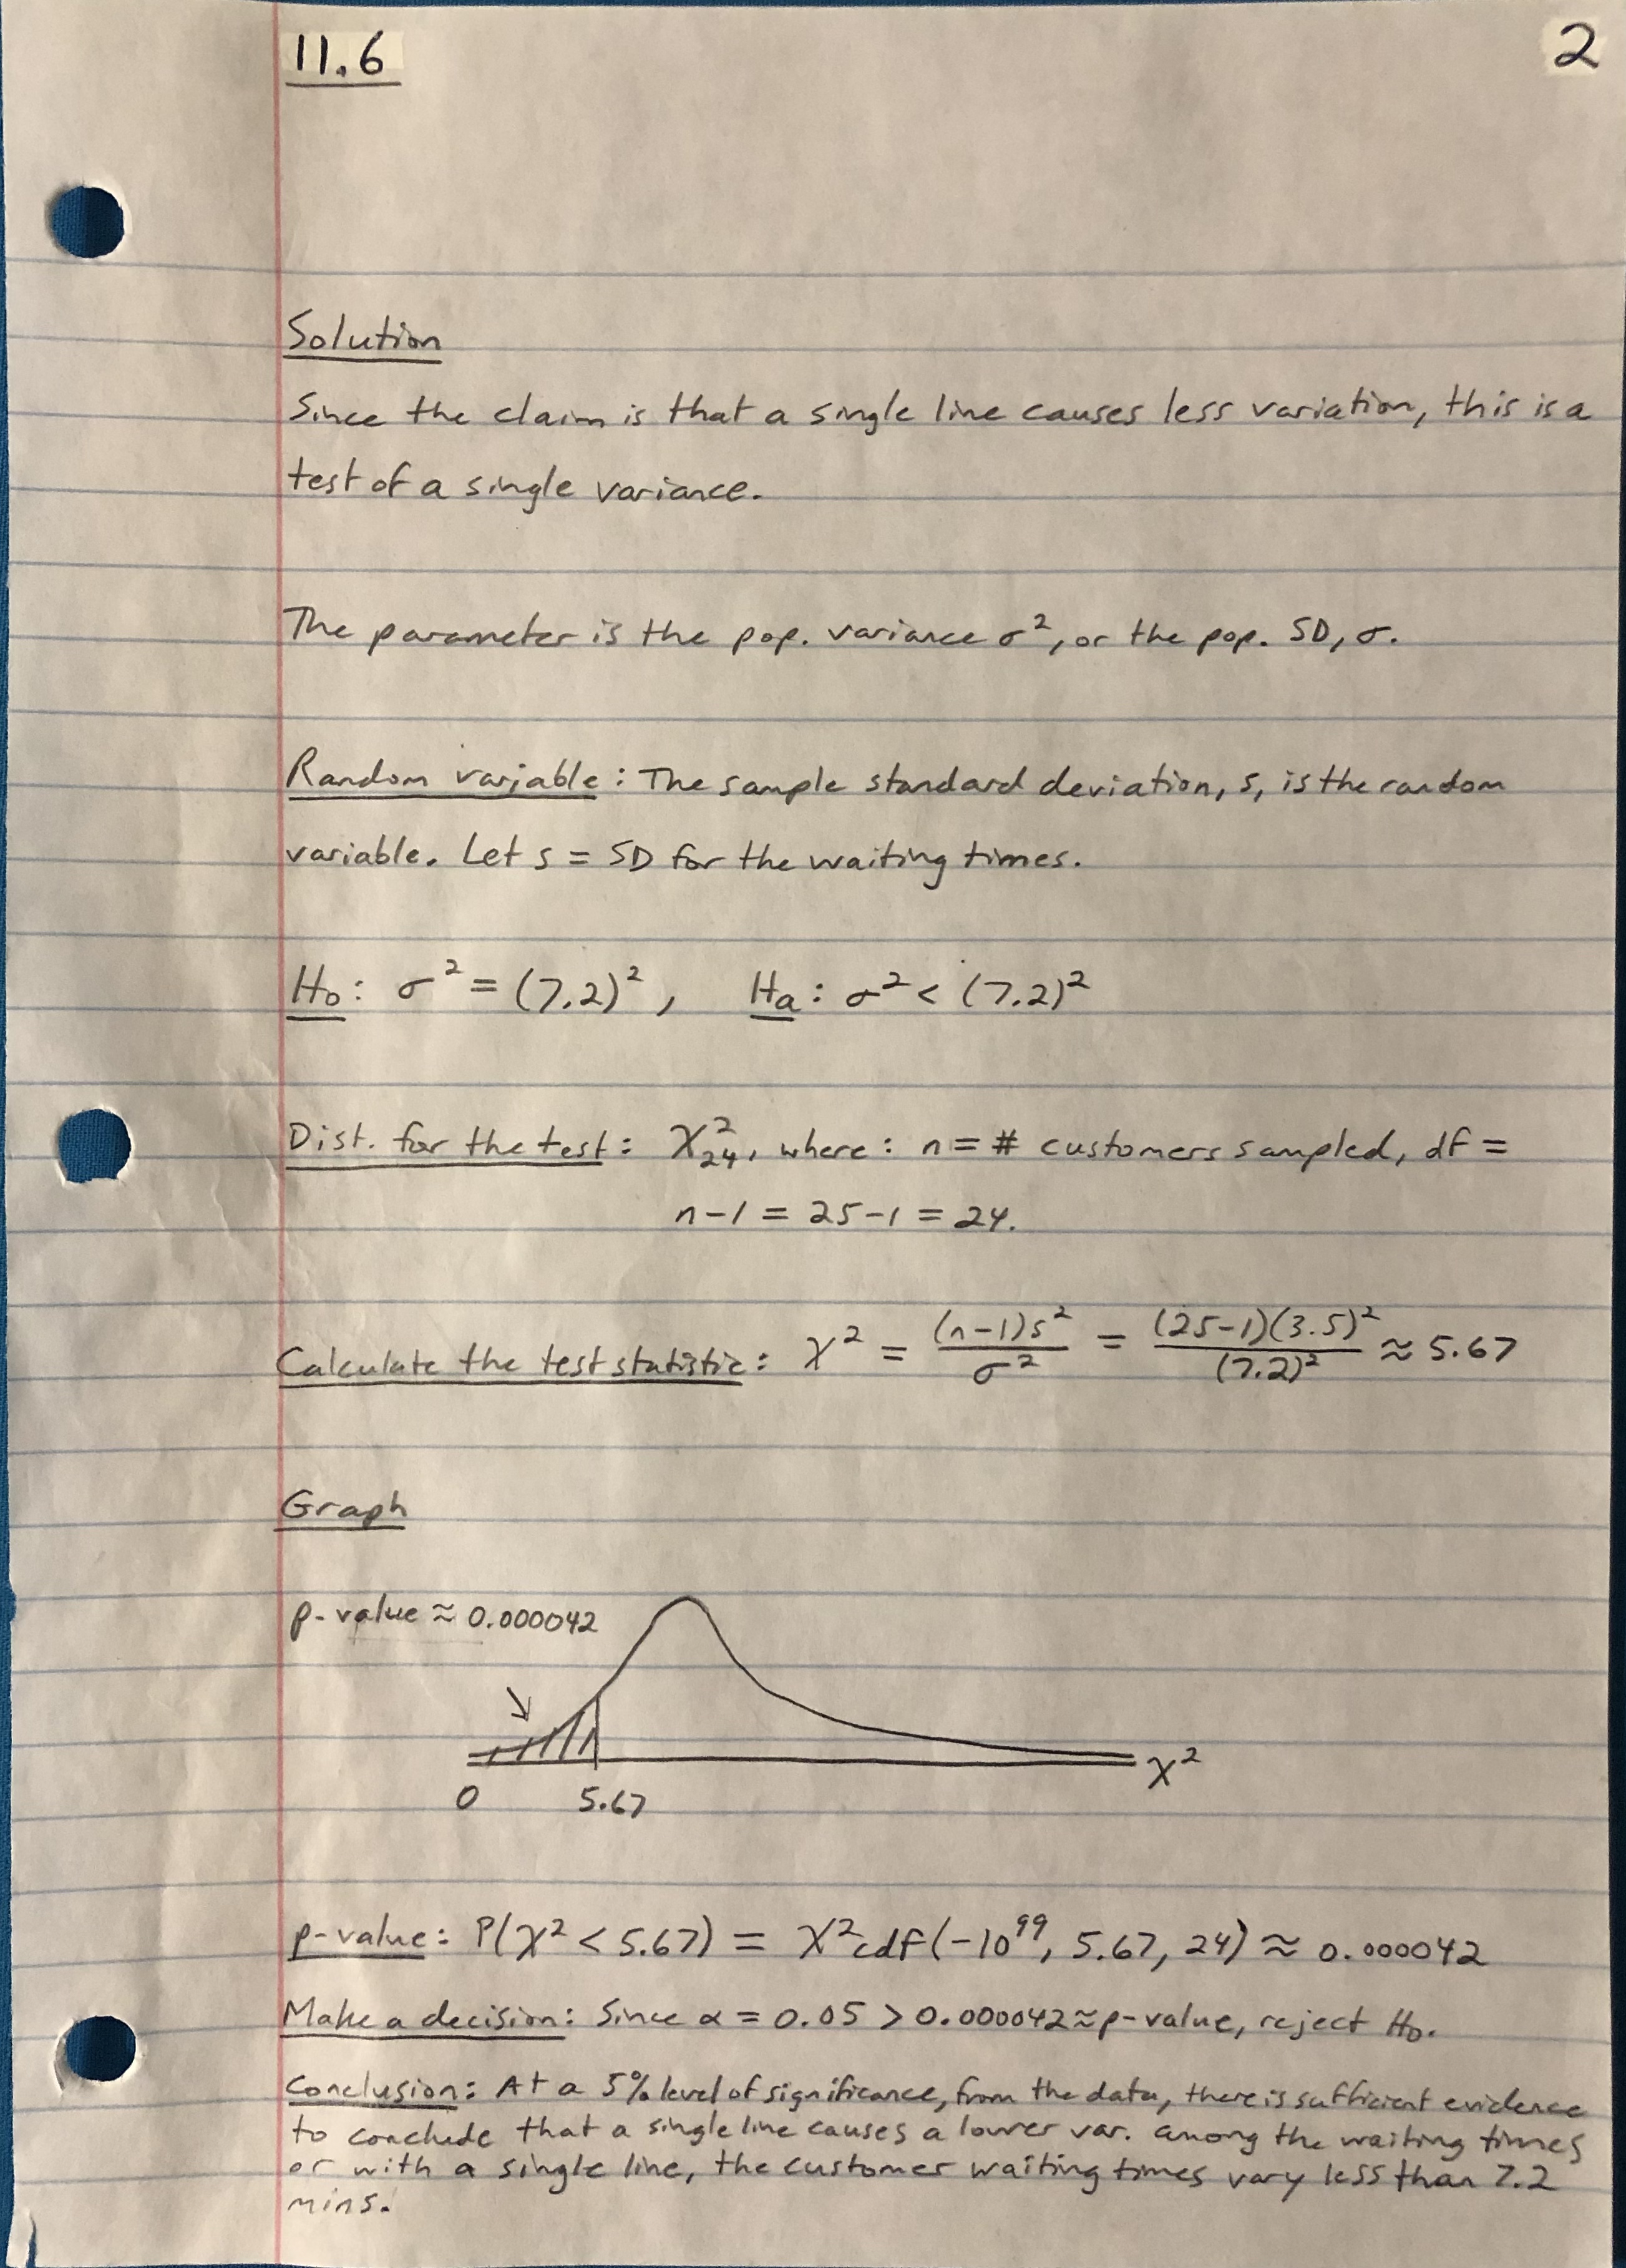 11.6 2
Solution
Since the claim is that a single line causes less variation, this is a
test of a single variance.
The parameter is the pop. variance σ², or the pop. SD, σ.
Random variable: The sample standard deviation, s, is the random
variable. Let s = SD for the waiting times.
H₀: σ² = (7.2)², Hₐ: σ² < (7.2)²
Dist. for the test: χ²₂₄, where: n = # customers sampled, df =
n-1 = 25-1 = 24.
Calculate the test statistic: χ² = (n-1)s²/σ² = (25-1)(3.5)²/(7.2)² ≈ 5.67
Graph
p-value ≈ 0.000042
0 5.67 χ²
p-value: P(χ² < 5.67) = χ²cdf(-10⁹⁹, 5.67, 24) ≈ 0.000042
Make a decision: Since α = 0.05 > 0.000042 ≈ p-value, reject H₀.
Conclusion: At a 5% level of significance, from the data, there is sufficient evidence
to conclude that a single line causes a lower var. among the waiting times
or with a single line, the customer waiting times vary less than 7.2
mins.